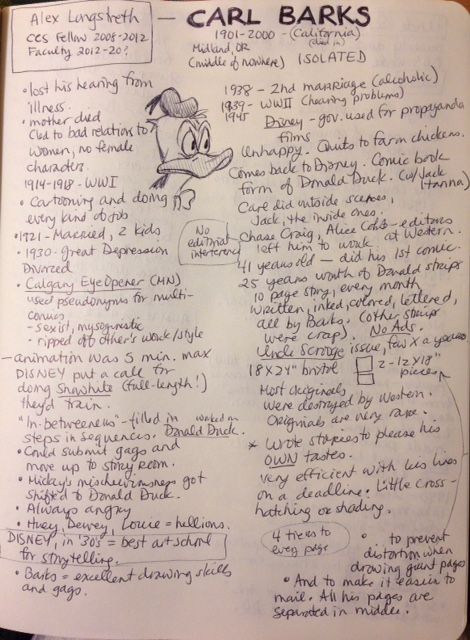 Alex Longstreth
CCS Fellow 2008-2012
Faculty 2012-20?
— CARL BARKS
1901-2000 - (California)
(died in)
Midland, OR
(middle of nowhere) ISOLATED
• lost his hearing from
illness.
• mother died
(led to bad relations to
women, no female
characters.
1914-1918 - WWI
• Cartooning and doing
every kind of job
• 1921 - Married, 2 kids
• 1930 - Great Depression
Divorced
• Calgary Eye Opener (MN)
used pseudonyms for multi-
comics
- sexist, mysogynistic
- ripped off other's work/style
— animation was 5 min. max
DISNEY put a call for
doing Snowhite (full-length!)
they'd train.
"In-betweeness" - filled in
steps in sequences. worked on
Donald Duck.
• Could submit gags and
move up to story room.
• Mickey's mischeviousness got
shifted to Donald Duck.
• Always angry
• Huey, Dewey, Louie = hellions.
DISNEY, in '30s = best art school
for storytelling.
• Barks = excellent drawing skills
and gags.
No
editorial
interference
1938 - 2nd marriage (alcoholic)
1939 - WWII (hearing problems)
1945
Disney - gov. used for propaganda
films
Unhappy. Quits to farm chickens.
Comes back to Disney. Comic book
form of Donald Duck. (w/ Jack
Hanna)
Carl did outside scenes,
Jack, the inside ones.
Chase Craig, Alice Cobb - editors
left him to work at Western.
41 years old - did his 1st comic.
25 years worth of Donald strips
10 page story, every month
written, inked, colored, lettered,
all by Barks. (other strips
were crap). No Ads.
Uncle Scrooge issue, few x a year
18 x 24" bristol
2 - 12 x 18"
pieces
Most originals
were destroyed by Western.
Originals are very rare.
* Wrote stories to please his
OWN tastes.
very efficient with his lines
on a deadline. Little cross-
hatching or shading.
4 tiers to
every page
• to prevent
distortion when
drawing giant pages
• And to make it easier to
mail. All his pages are
separated in middle.